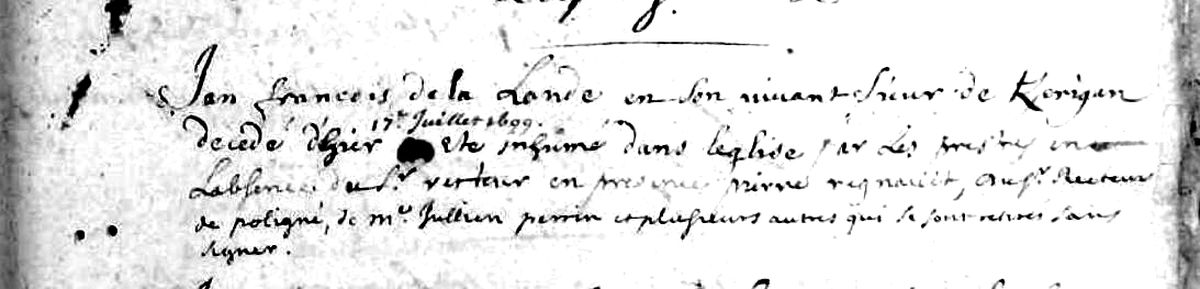 Jan francois de la Lande en son vivant Sieur de Kerigan
17e Juillet 1699.
decedé d'hier eté inhumé dans leglise par Les prestres en
Labsence du Sr. recteur en presence pierre regnault, Recteur
de poligné, de me Jullien perrin et plusieurs autres qui se sont retirés sans
signer.